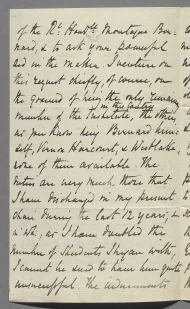 of the Rt. Honble. Montague Ber-
nard, & to ask your powerful
aid in the matter. I venture on
this request chiefly, of course, on
the ground of being the only remaining
in the Country
member of the Institute, the others,
as you know being Bernard him-
self, Vernon Harcourt, & Westlake
none of them available. The
duties are very much those that
I have discharged in my present
chair during the last 12 years, &
in wh: as I have doubled the
number of Students I began with
I cannot be said to have been quite
unsuccessful. The inducements